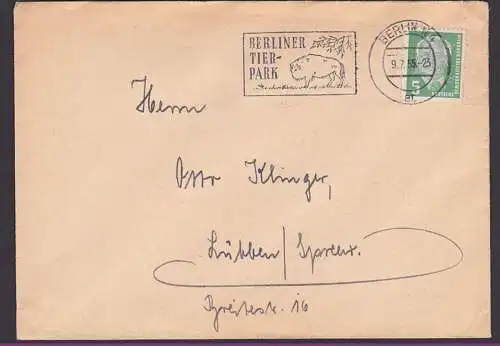 BERLINER
TIER-
PARK
BERLIN
9.7.55-23
5
Herrn
Otto Klinger,
Lübben/Spreew.
Breitestr. 16